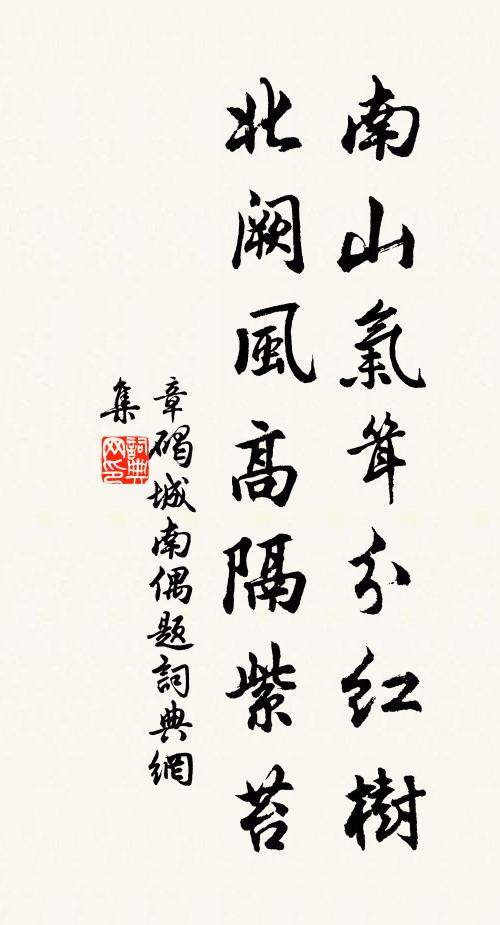 南山氣耸分紅樹
北阙風高隔紫苔
章碣城南偶題詞典網
集
詞典
网印